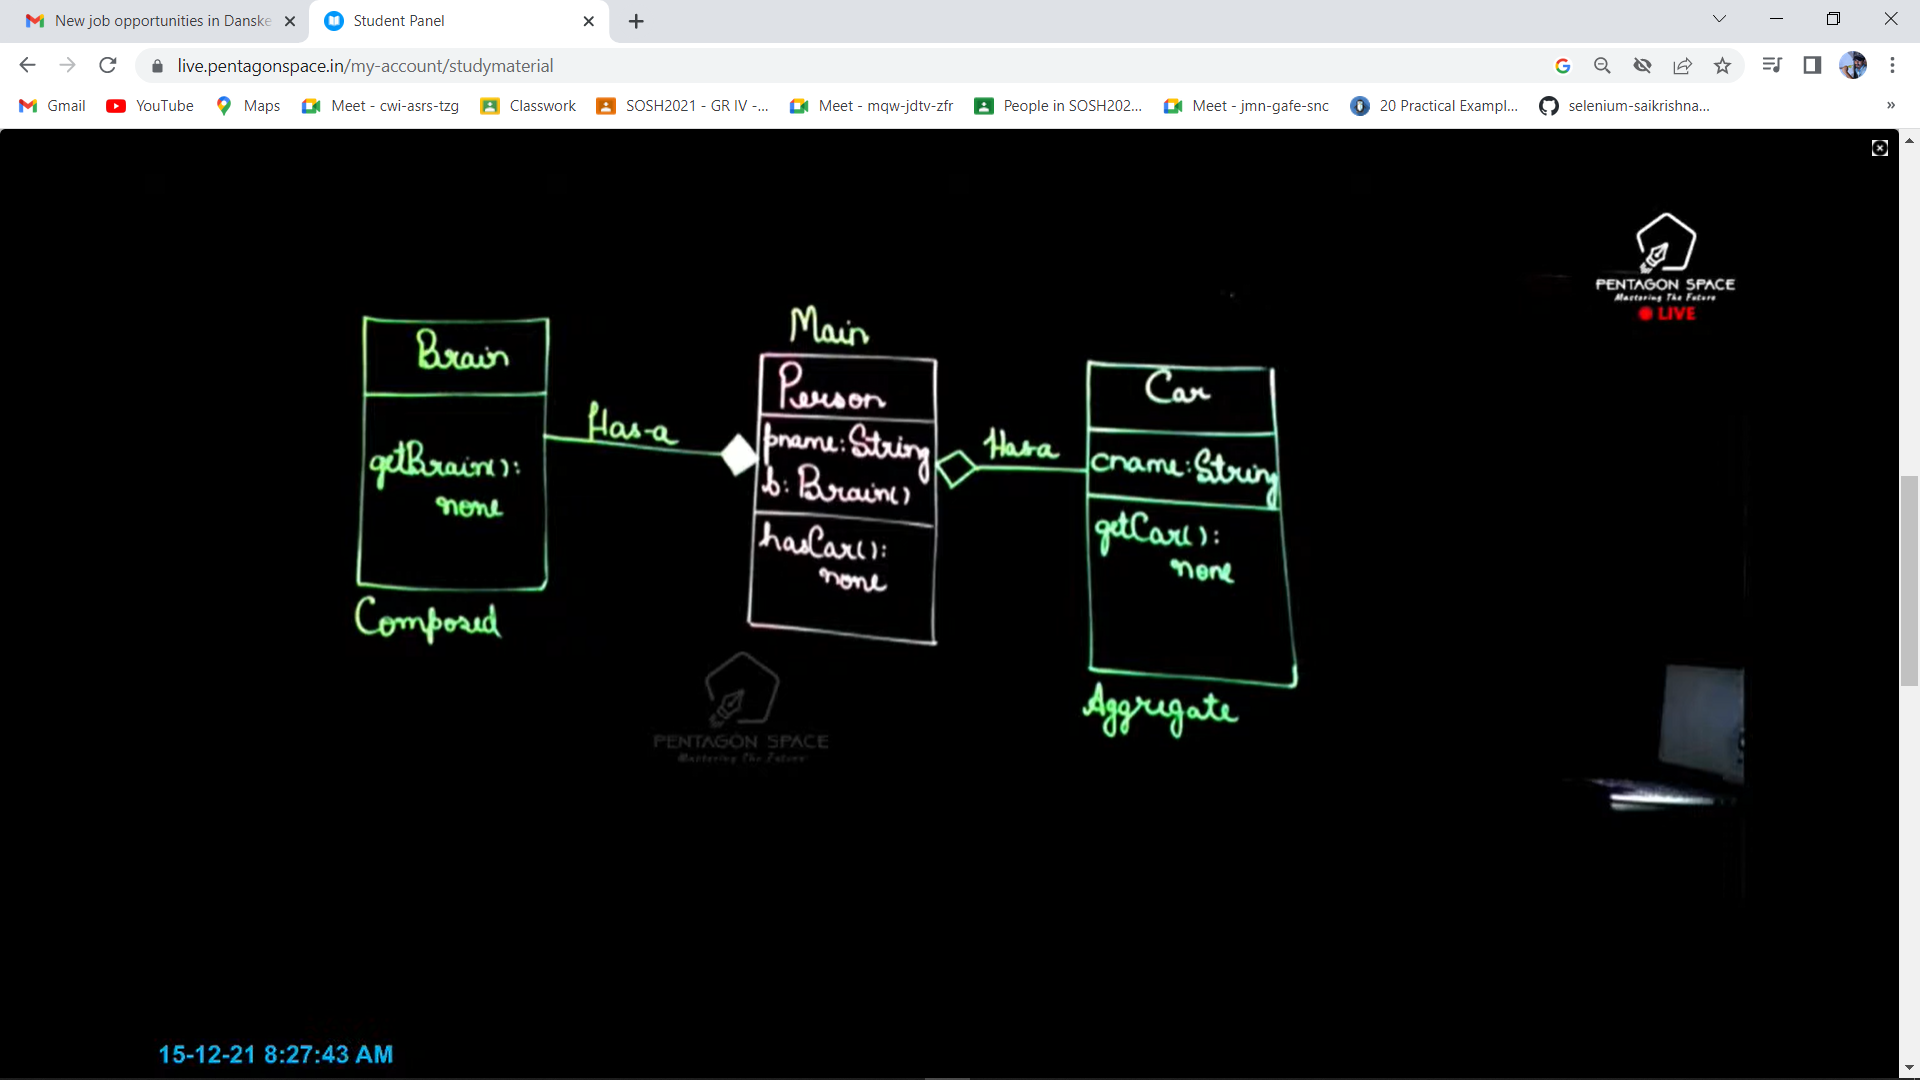 New job opportunities in Danske
Student Panel
live.pentagonspace.in/my-account/studymaterial
Gmail
YouTube
Maps
Meet - cwi-asrs-tzg
Classwork
SOSH2021 - GR IV -...
Meet - mqw-jdtv-zfr
People in SOSH202...
Meet - jmn-gafe-snc
20 Practical Exampl...
selenium-saikrishna...
»
PENTAGON SPACE
Mastering The Future
LIVE
Main
Brain
Person
Car
Has-a
pname: String
Has-a
cname: String
getBrain():
none
b: Brain()
hasCar():
none
getCar():
none
Composed
Aggregate
PENTAGON SPACE
Mastering The Future
15-12-21 8:27:43 AM